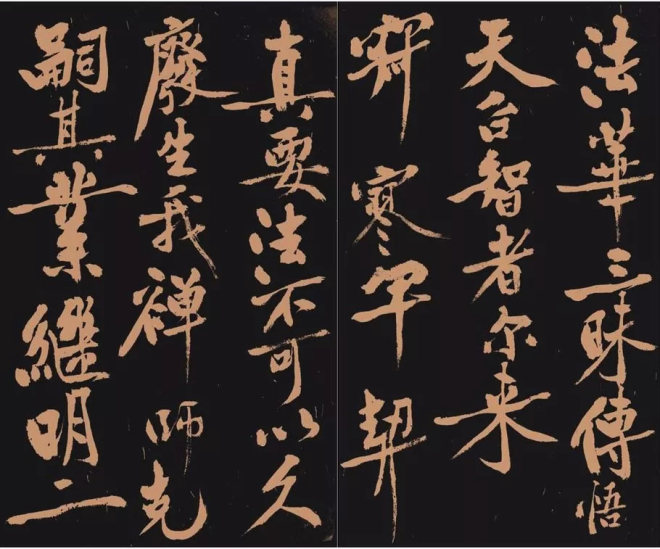 法華三昧傳悟
天台智者尔来
寂寥罕契
真要法不可以久
廢生我禪師克
嗣其業継明二